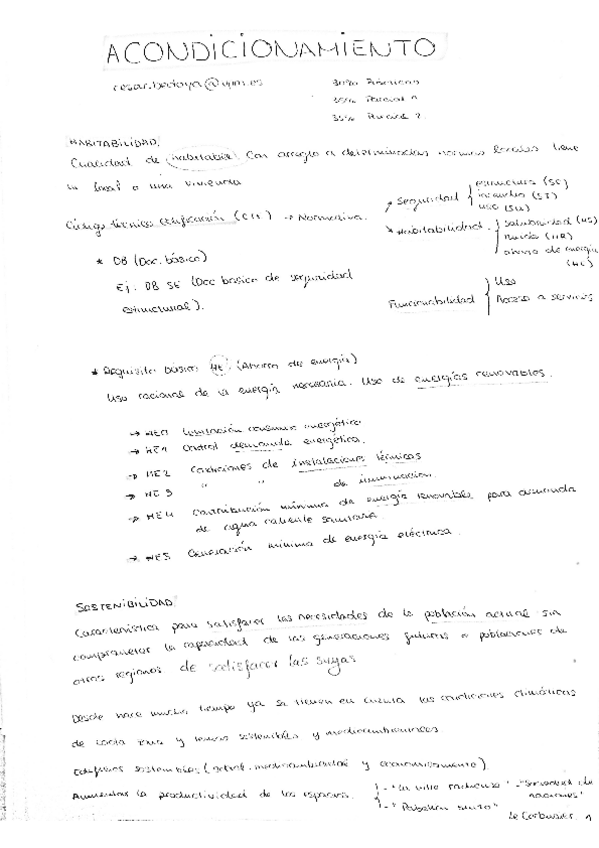 ACONDICIONAMIENTO
cesar.bedoya@upm.es
30% Prácticas
35% Parcial 1
35% Parcial 2
HABITABILIDAD.
Cualidad de habitable. Con arreglo a determinadas normas legales tiene
un local o una vivienda
Código técnico edificación (CTE) → Normativa.
→ Seguridad { estructural (SE)
incendios (SI)
uso (SU)
→ Habitabilidad { Salubridad (HS)
Ruido (HR)
ahorro de energía
(HE)
* DB (Doc. básico)
Ej. DB SE (Doc basico de seguridad
estructural).
Funcionabilidad { Uso
Acceso a servicios
* Requisito básico HE (Ahorro de energía)
Uso racional de la energía necesaria. Uso de energías renovables.
→ HE0 Limitación consumo energético
→ HE1 Control demanda energética.
→ HE2 Condiciones de instalaciones térmicas
→ HE3 " " de iluminación.
→ HE4 Contribución mínima de energía renovable para demanda
de agua caliente sanitaria.
→ HE5 Generación mínima de energía eléctrica.
SOSTENIBILIDAD
Característica para satisfacer las necesidades de la población actual sin
comprometer la capacidad de las generaciones futuras o poblaciones de
otras regiones de satisfacer las suyas
Desde hace mucho tiempo ya se tienen en cuenta las condiciones climáticas
de cada zona y temas sostenibles y medioambientales
Edificios sostenibles ( medioambiental y económicamente)
Aumentar la productividad de los espacios. { - "La ville radieuse" - "Sociedad de
naciones"
- "Pabellón suizo"
Le Corbusier. 1